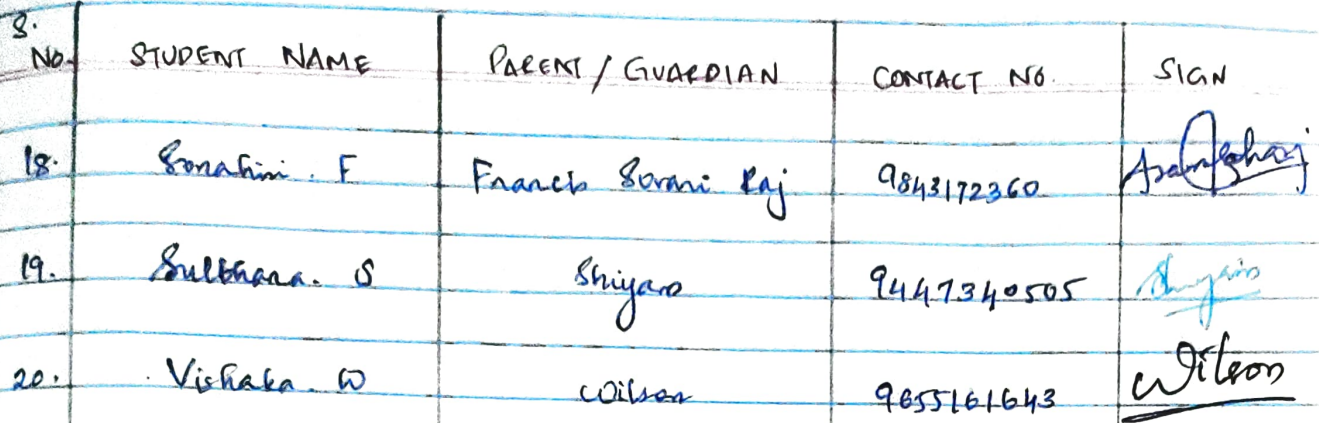 S. No. STUDENT NAME PARENT / GUARDIAN CONTACT NO. SIGN
18. Sonahini. F Francis Sovari Raj 9843172360
19. Sulthana. S Shiyas 9447340505 Shiyas
20. Vishaka. W Wilson 9655161643 Wilson